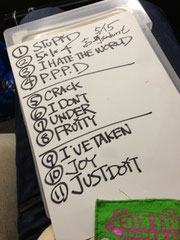 ① STUPID
② SiNT
③ I HATE THE WORLD
④ P.P.P.D
⑤ CRACK
⑥ I DON'T
⑦ UNDER
⑧ FRUITY
⑨ I'VE TAKEN
⑩ JOY
⑪ JUST DO IT